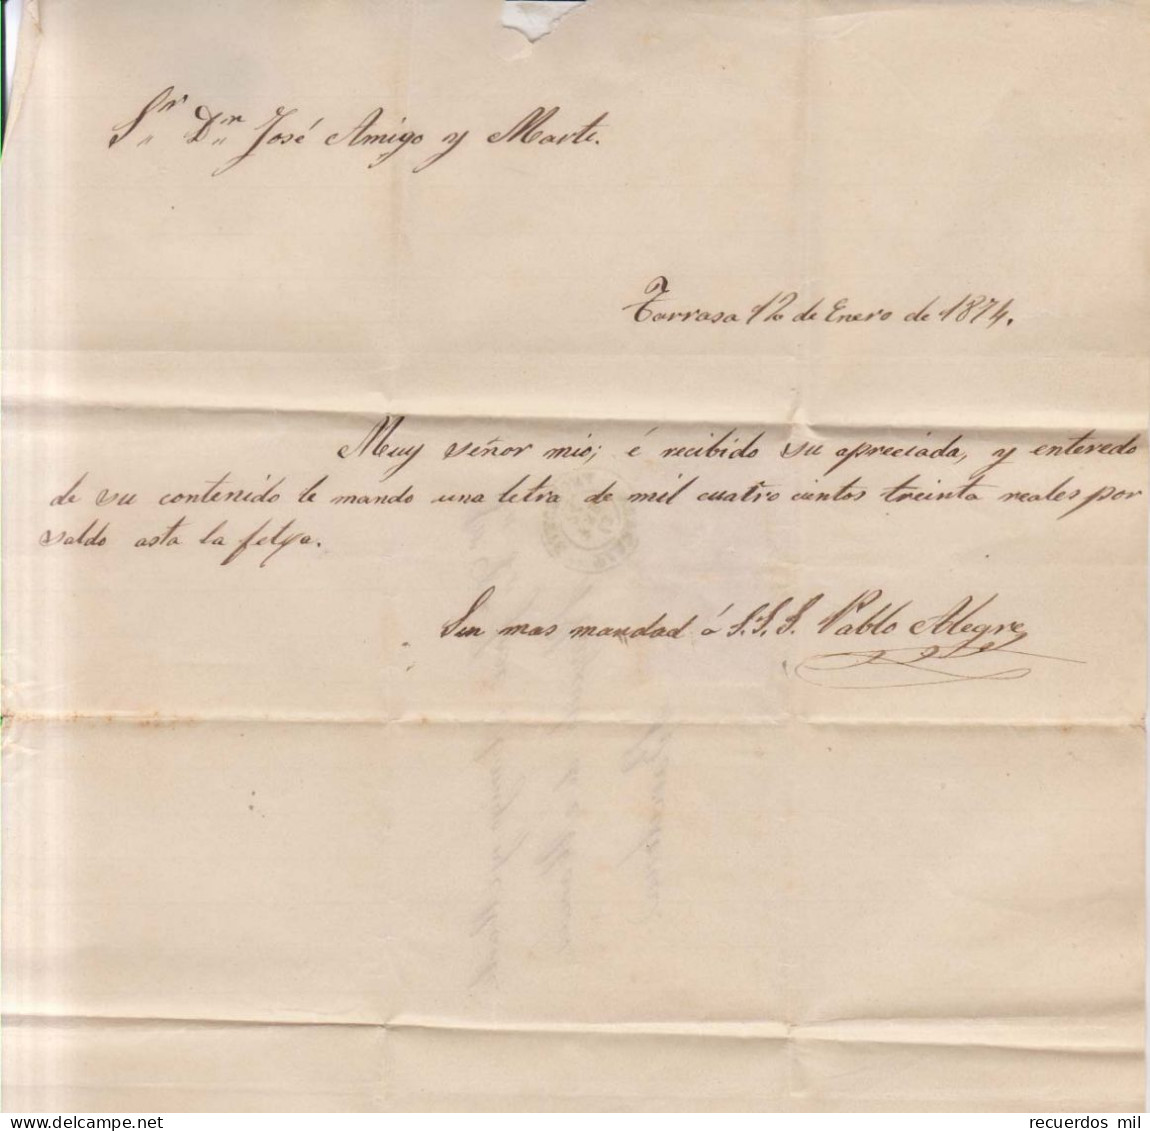 Sr. Dn. José Amigo y Marti.
Tarrasa 12 de Enero de 1874.
Muy señor mio; é recibido su apreciada, y enteredo
de su contenido le mando una letra de mil cuatro cientos treinta reales por
saldo asta la fetxa.
Sin mas mandad á S. S. S. Pablo Alegre
recuerdos mil